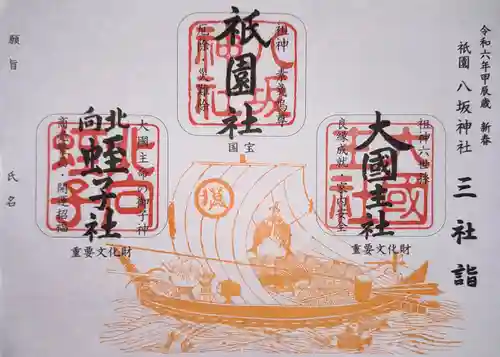 令和六年甲辰歳 新春
祇園 八坂神社 三社詣
祖神 素戔嗚尊
祇園社
厄除・災難除
八坂神社
国宝
祖神六世孫
大國主社
良縁成就・家内安全
大國主社
重要文化財
大國主命の御子神
北向蛭子社
商売繁盛・開運招福
北向蛭子
重要文化財
願旨
氏名